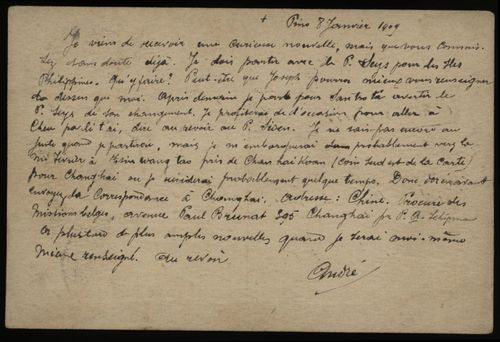 + Pino 8 Janvier 1909
Je viens de recevoir une curieuse nouvelle, mais que vous connais-
sez sans doute déjà. Je dois partir avec le P. Seys pour les Iles
Philippines. Qu'y faire? Peut-être que Joseph pourra mieux vous renseigner
là dessus que moi. Après demain je pars pour avertir le
P. Seys de son changement. Je profiterai de l'occasion pour aller à
dire au revoir au P. Je ne sais pas encore au
juste quand je partirai, mais je m'embarquerai probablement vers la
mi février à wang tao près de Chan hai Kwan (coin sud est de la Carte)
pour Changhai où je résiderai probablement quelque temps. Donc dorénavant
envoyez la correspondance à Changhai. Adresse: Chine. Procure des
Missions belges, avenue Paul Brunat 295 Changhai pr P. A.
A plus tard de plus amples nouvelles quand je serai moi-même
mieux renseigné. Au revoir
André